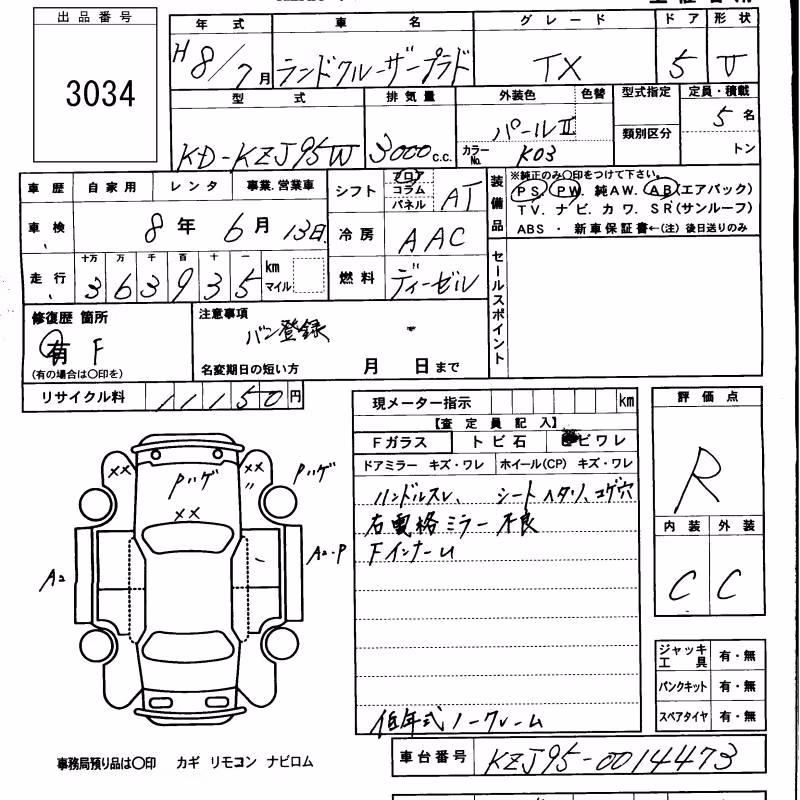 出品番号
3034
年式 車名 グレード ドア 形状
H 8/7月 ランドクルーザープラド TX 5 V
型式 排気量 外装色 色替 型式指定 定員・積載
類別区分
KD-KZJ95W 3000c.c. パールII カラーNo. K03 5名
トン
車歴 自家用 レンタ 事業.営業車
車検 8年 6月 13日
走行 十万 万 千 百 十 一 km マイル
363935
シフト フロア コラム パネル AT
冷房 AAC
燃料 ディーゼル
装備品
※純正のみ〇印をつけて下さい。
PS. PW. 純AW. AB(エアバック)
TV. ナビ. カワ. SR(サンルーフ)
ABS ・ 新車保証書←(注) 後日送りのみ
セールスポイント
修復歴 箇所
有 F
(有の場合は〇印を)
注意事項
バン登録
名変期日の短い方 月 日まで
リサイクル料 11150円
現メーター指示 km
【査定員記入】
Fガラス トビ石 ビワレ
ドアミラー キズ・ワレ ホイール(CP) キズ・ワレ
ハンドルスレ、 シートヘタリ、コゲ穴
右電格ミラー不良
Fインナーム
低年式ノークレーム
評価点
R
内装 外装
C C
ジャッキ工具 有・無
パンクキット 有・無
スペアタイヤ 有・無
XX XX
〃
Pハゲ Pハゲ
XX
A2 A2・P
事務局預り品は〇印 カギ リモコン ナビロム
車台番号 KZJ95-0014473